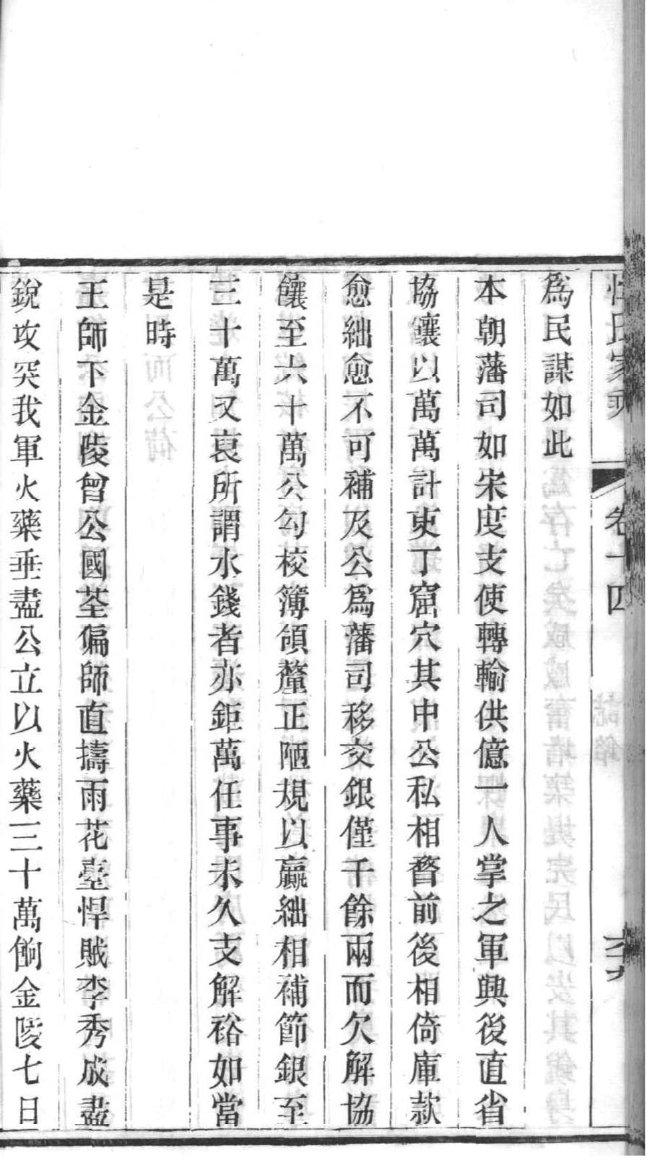 惲氏家乘 卷十四 誌銘 六
為民謀如此
本朝藩司如宋度支使轉輸供億一人掌之軍興後直省
協饟以萬萬計吏丁窟穴其中公私相瞀前後相倚庫款
愈絀愈不可補及公為藩司移交銀僅千餘兩而欠解協
饟至六十萬公勾校簿領釐正陋規以贏絀相補節銀至
三十萬又裒所謂水錢者亦鉅萬任事未久支解裕如當
是時
王師下金陵曾公國荃偏師直擣雨花臺悍賊李秀成盡
銳攻突我軍火藥垂盡公立以火藥三十萬餉金陵七日